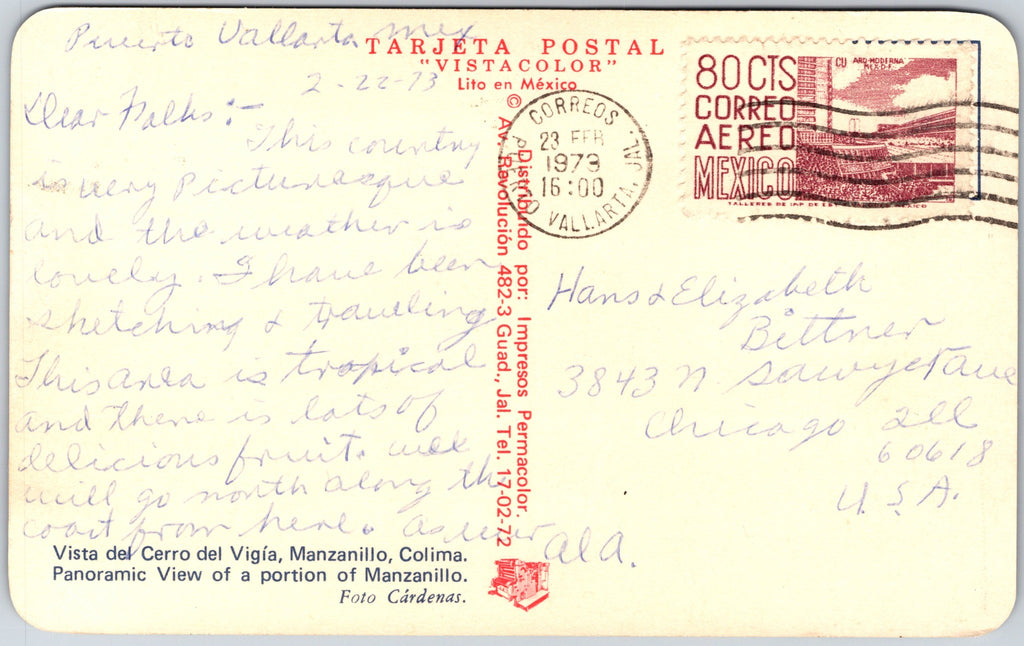 Puerto Vallarta Mex
2-22-73
Dear Folks:-
This country
is very picturesque
and the weather is
lovely. I have been
sketching & traveling
This area is tropical
and there is lots of
delicious fruit.
will go north along the
coast from here. As ever
Al A.
Vista del Cerro del Vigía, Manzanillo, Colima.
Panoramic View of a portion of Manzanillo.
Foto Cárdenas.
TARJETA POSTAL
"VISTACOLOR"
Lito en México
©
Distribuido por: Impresos Permacolor.
Av. Revolución 482-3 Guad., Jal. Tel. 17-02-72
CORREOS
23 FEB
1973
16:00
PUERTO VALLARTA, JAL.
80 CTS
CORREO
AEREO
MEXICO
CU ARQ-MODERNA
MEX-D-F-
Hans & Elizabeth
Bittner
3843 N. Sawyer Ave
Chicago Ill
60618
U.S.A.